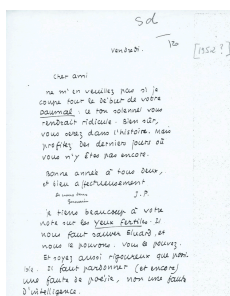 Sd
/20
[1952 ?]
Vendredi.
Cher ami
ne m'en veuillez pas si je
coupe tout le début de votre
Daumal : le ton solennel vous
rendrait ridicule. Bien sûr,
vous serez dans l'histoire. Mais
profitez des derniers jours où
vous n'y êtes pas encore.
Bonne année à tous deux,
et bien affectueusement
J. P.
Je tiens beaucoup à votre
note sur les Yeux fertiles. Il
nous faut sauver Eluard, et
nous le pouvons. Vous le pouvez.
Et soyez aussi rigoureux que possi
ble. Il faut pardonner (et encore)
une faute de poésie, non une faute
d'intelligence.